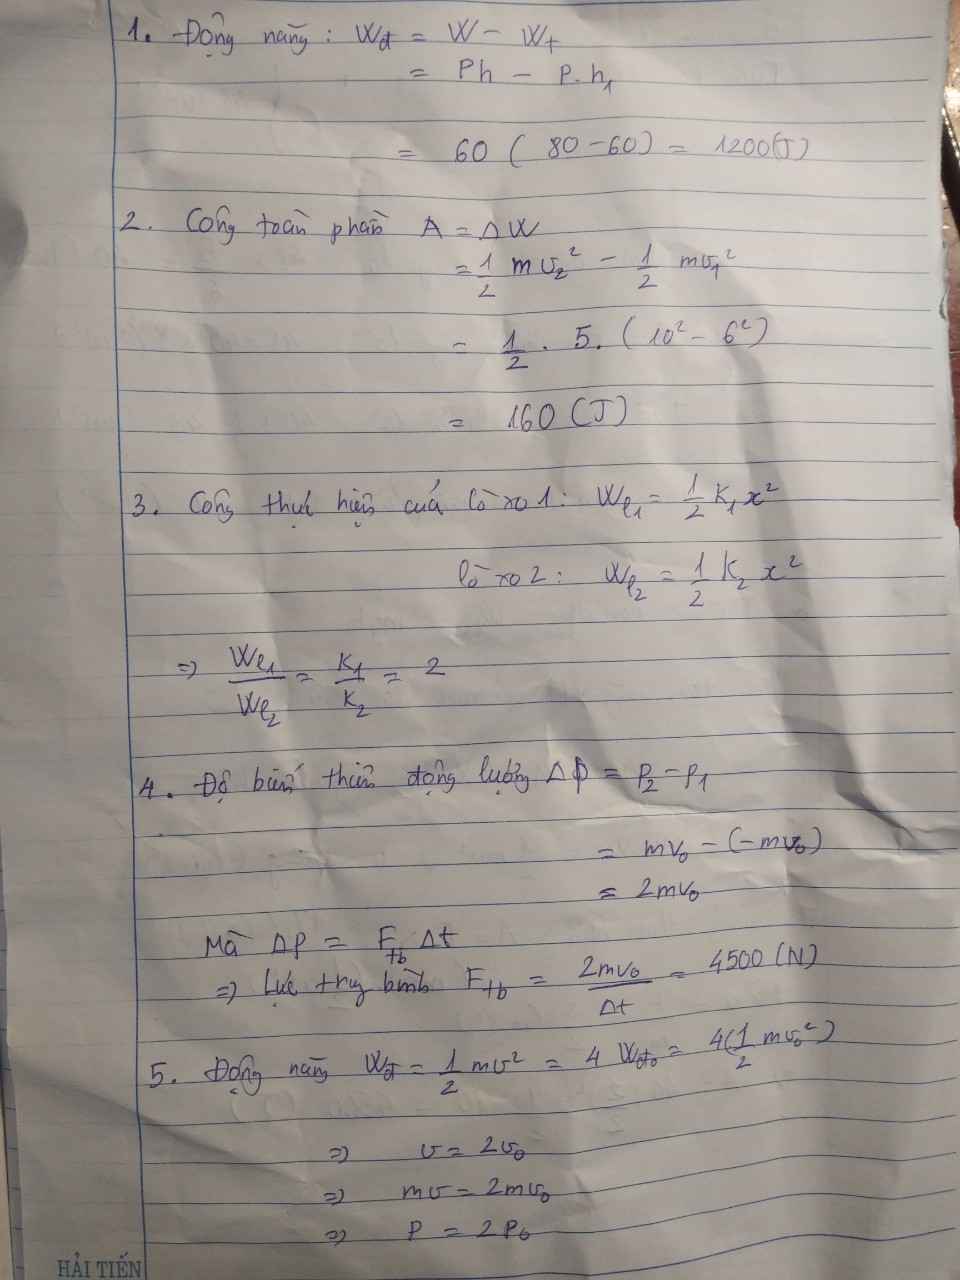 1. Động năng: Wđ = W - Wt
= Ph - P.h₁
= 60 ( 80 - 60) = 1200(J)
2. Công toàn phần A = ΔW
= 1/2 mv₂² - 1/2 mv₁²
= 1/2 . 5. (10² - 6²)
= 160 (J)
3. Công thực hiện của lò xo 1: Wl₁ = 1/2 K₁x²
lò xo 2: Wl₂ = 1/2 K₂ x²
=> Wl₁/Wl₂ = K₁/K₂ = 2
4. Độ biến thiên động lượng Δp = p₂ - p₁
= mv₀ - (-mv₀)
= 2mv₀
Mà Δp = Ftb Δt
=> Lực trung bình Ftb = 2mv₀/Δt = 4500 (N)
5. Động năng Wđ = 1/2 mv² = 4 Wđ₀ = 4(1/2 mv₀²)
=> v = 2v₀
=> mv = 2mv₀
=> P = 2P₀
HẢI TIẾN